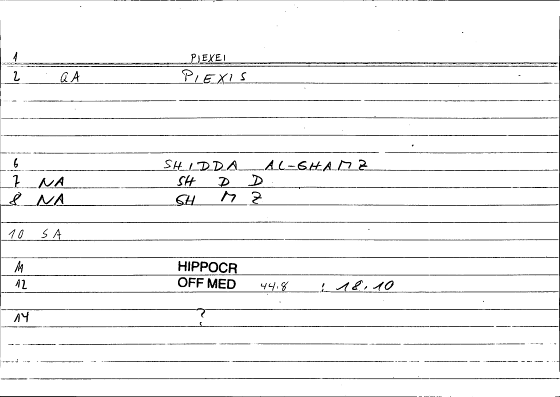 1 PIEXEI
2 GA PIEXIS
6 SHIDDA AL-GHAMZ
7 NA SH D D
8 NA GH M Z
10 SA
11 HIPPOCR
12 OFF MED 44.8 : 18.10
14 ?